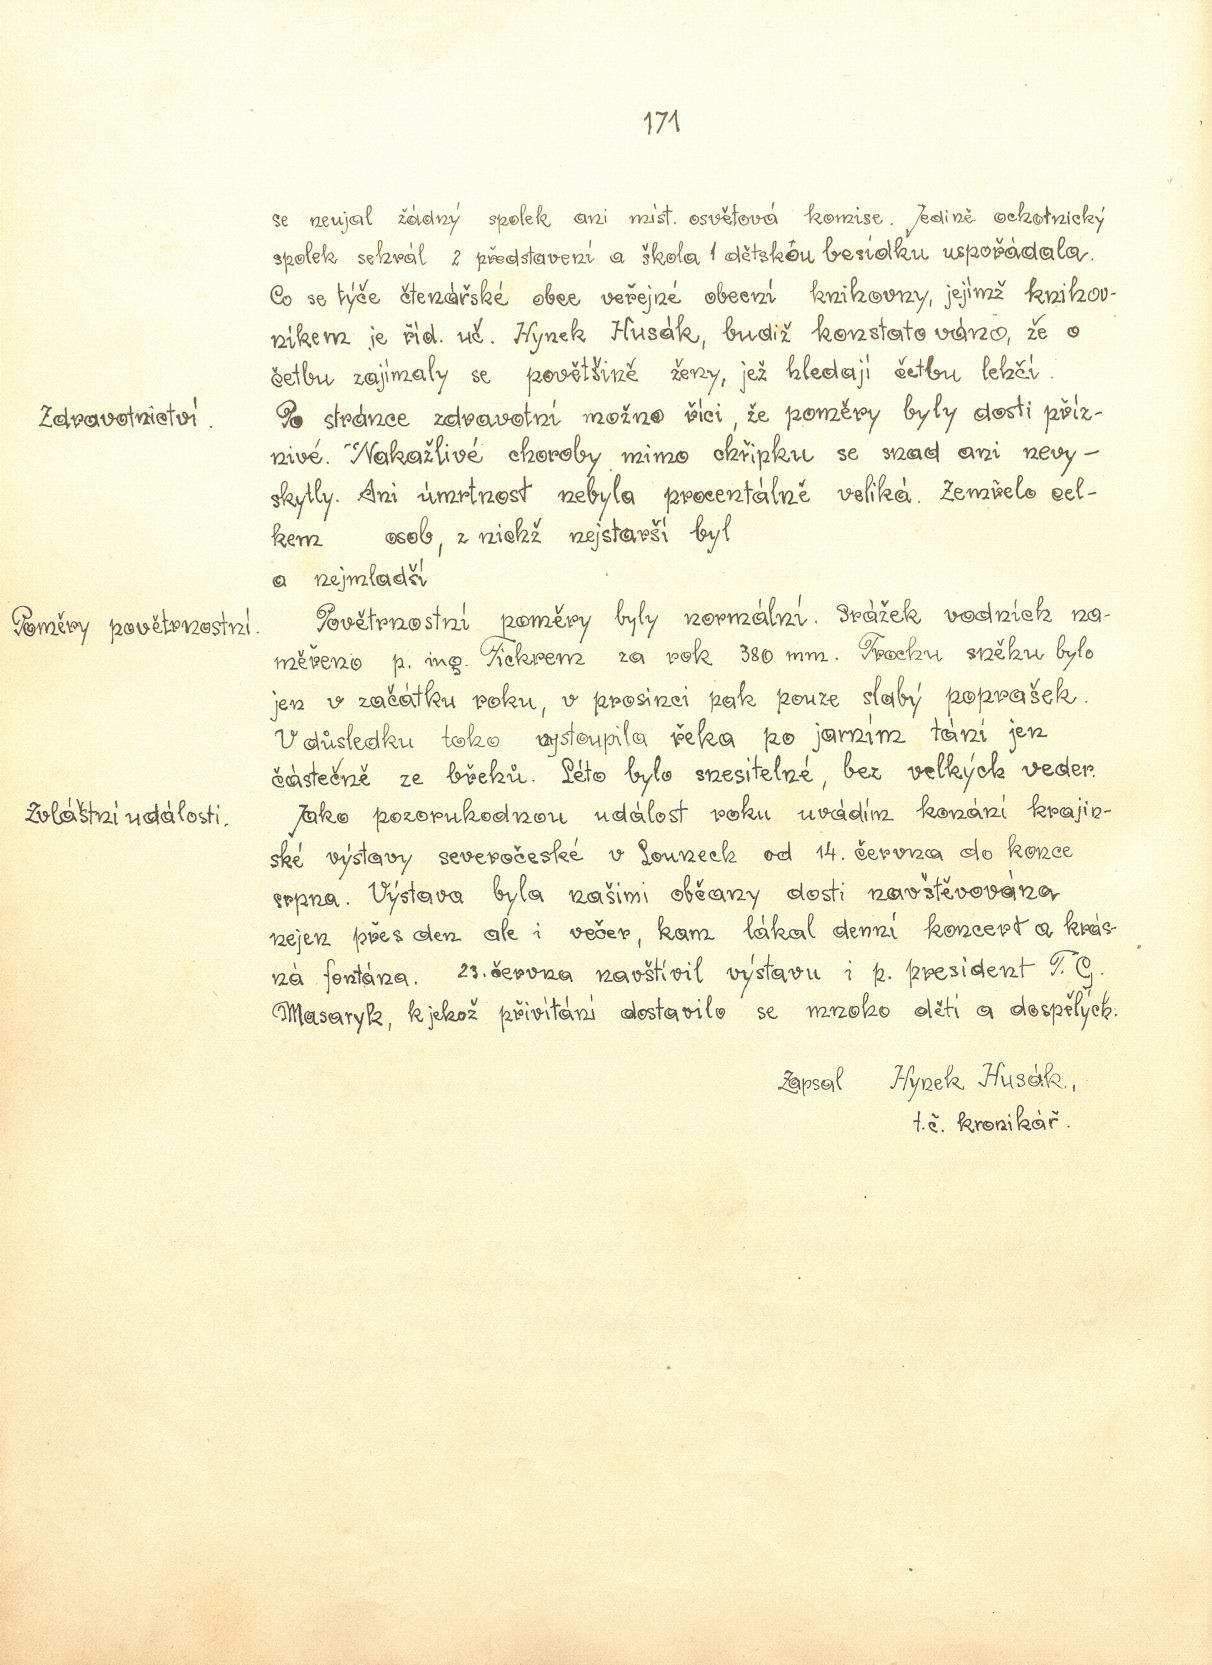 171
se neujal žádný spolek ani míst. osvětová komise. Jedině ochotnický
spolek sehrál 2 představení a škola 1 dětskou besídku uspořádala.
Co se týče čtenářské obce veřejné obecní knihovny, jejímž knihov-
níkem je říd. uč. Hynek Husák, budiž konstatováno, že o
četbu zajímaly se povětšině ženy, jež hledají četbu lehčí.
Zdravotnictví. Po stránce zdravotní možno říci, že poměry byly dosti příz-
nivé. Nakažlivé choroby mimo chřipku se snad ani nevy-
skytly. Ani úmrtnost nebyla procentálně veliká. Zemřelo cel-
kem osob, z nichž nejstarší byl
a nejmladší
Poměry povětrnostní. Povětrnostní poměry byly normální. Srážek vodních na-
měřeno p. ing. Fickrem za rok 380 mm. Trochu sněhu bylo
jen v začátku roku, v prosinci pak pouze slabý poprašek.
V důsledku toho vystoupila řeka po jarním tání jen
částečně ze břehů. Léto bylo snesitelné, bez velkých veder.
Zvláštní události. Jako pozoruhodnou událost roku uvádím konání krajin-
ské výstavy severočeské v Lounech od 14. června do konce
srpna. Výstava byla našimi občany dosti navštěvována
nejen přes den ale i večer, kam lákal denní koncert a krás-
ná fontána. 23. června navštívil výstavu i p. president T. G.
Masaryk, k jehož přivítání dostavilo se mnoho dětí a dospělých.
Zapsal Hynek Husák.,
t.č. kronikář.